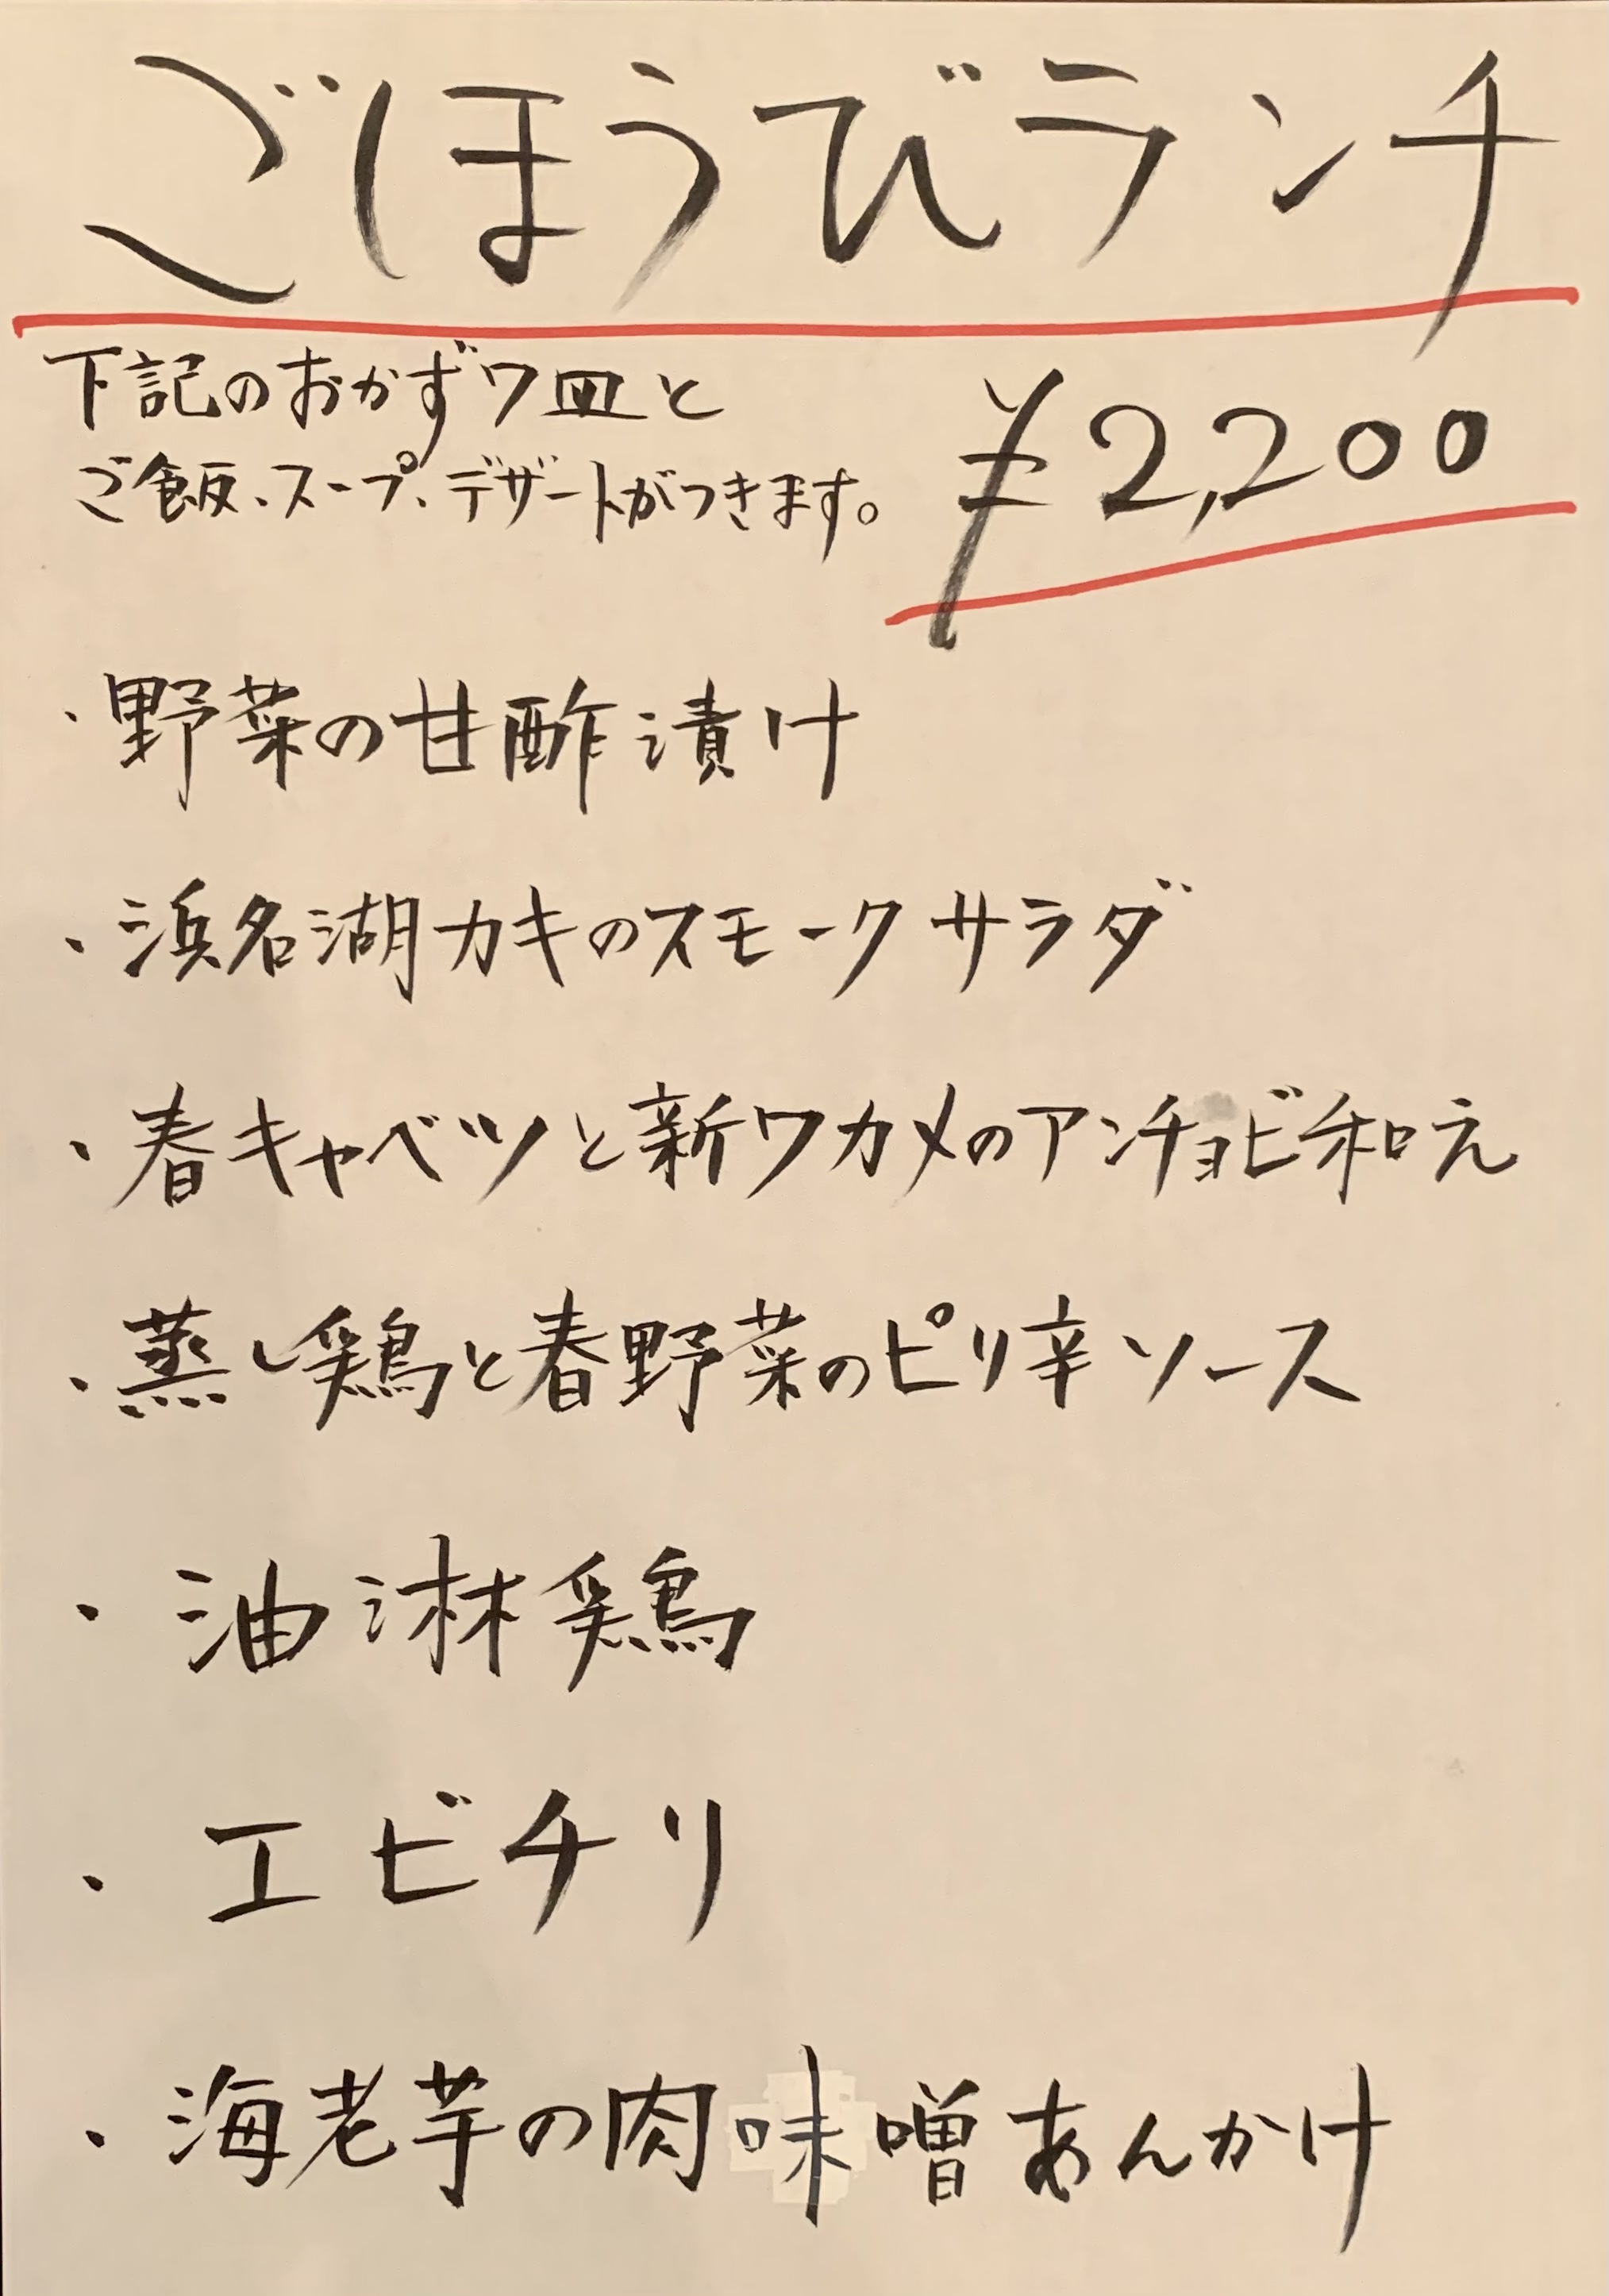 ごほうびランチ
下記のおかず7皿と
ご飯、スープ、デザートがつきます。
¥2,200
・野菜の甘酢漬け
・浜名湖カキのスモークサラダ
・春キャベツと新ワカメのアンチョビ和え
・蒸し鶏と春野菜のピリ辛ソース
・油淋鶏
・エビチリ
・海老芋の肉味噌あんかけ